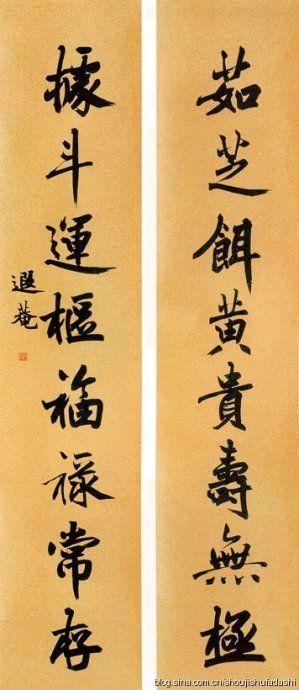 茹芝餌黃貴壽無極
據斗運樞福祿常存
遐菴
blog.sina.com.cn/shoujishufadashi